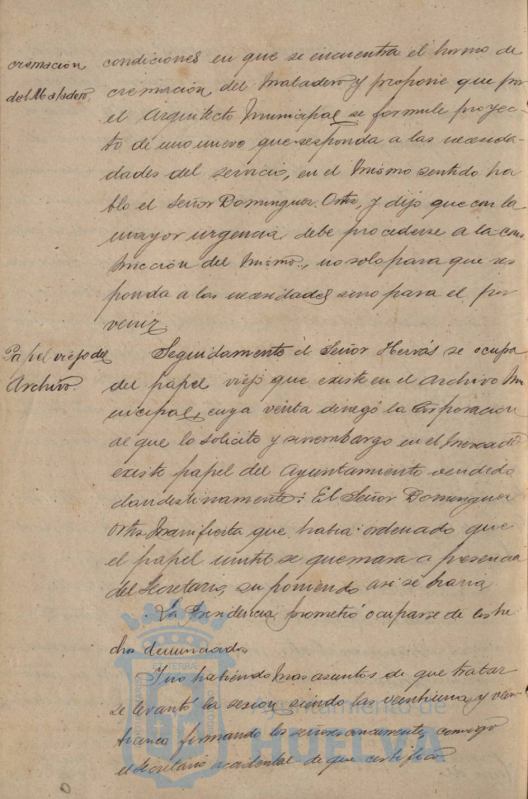 cremación
del Matadero
condiciones en que se encuentra el horno de
cremación del Matadero y propone que por
el Arquitecto Municipal se formule proyec-
to de uno nuevo que responda a las necesida-
dades del servicio, en el mismo sentido ha-
bló el Señor Dominguez Ortiz, y dijo que con la
mayor urgencia debe procederse a la cons
trucción del mismo, no solo para que res
ponda a las necesidades sino para el por
venir
Papel viejo del
Archivo
Seguidamente el Señor Hervás se ocupa
del papel viejo que existe en el archivo Mu
nicipal, cuya venta denegó la Corporación
al que lo solicitó y sin embargo en el mercado
existe papel del Ayuntamiento vendido
clandestinamente: El Señor Dominguez
Ortiz manifiesta que habia ordenado que
el papel inutil se quemara a presencia
del Secretario, suponiendo asi se haria
La Presidencia prometió ocuparse de los he
chos denunciados
Y no habiendo mas asuntos de que tratar
se levantó la sesion, siendo las veintiuna y
firmando los señores conmigo
el Secretario accidental de que certifico
Ayuntamiento de
HUELVA